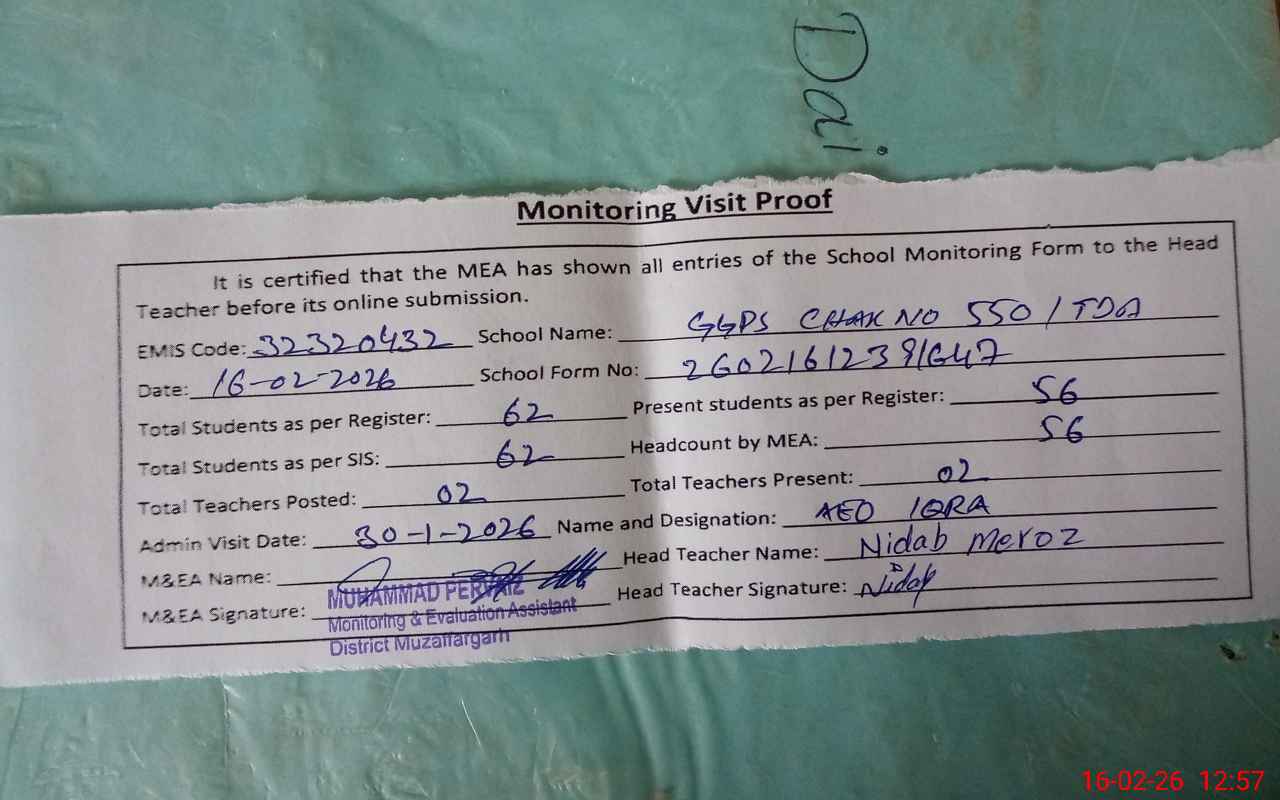 Dai
Monitoring Visit Proof
It is certified that the MEA has shown all entries of the School Monitoring Form to the Head
Teacher before its online submission.
EMIS Code: 32320432 School Name: GGPS CHAK NO 550 / TDA
Date: 16-02-2026 School Form No:
Total Students as per Register: 62 Present students as per Register: 56
Total Students as per SIS: 62 Headcount by MEA: 56
Total Teachers Posted: 02 Total Teachers Present: 02
Admin Visit Date: 30-1-2026 Name and Designation: AEO IQRA
M&EA Name: Head Teacher Name: Nidab meroz
M&EA Signature: Head Teacher Signature: Nidab
MUHAMMAD PERVAIZ
Monitoring & Evaluation Assistant
District Muzaffargarh
16-02-26 12:57